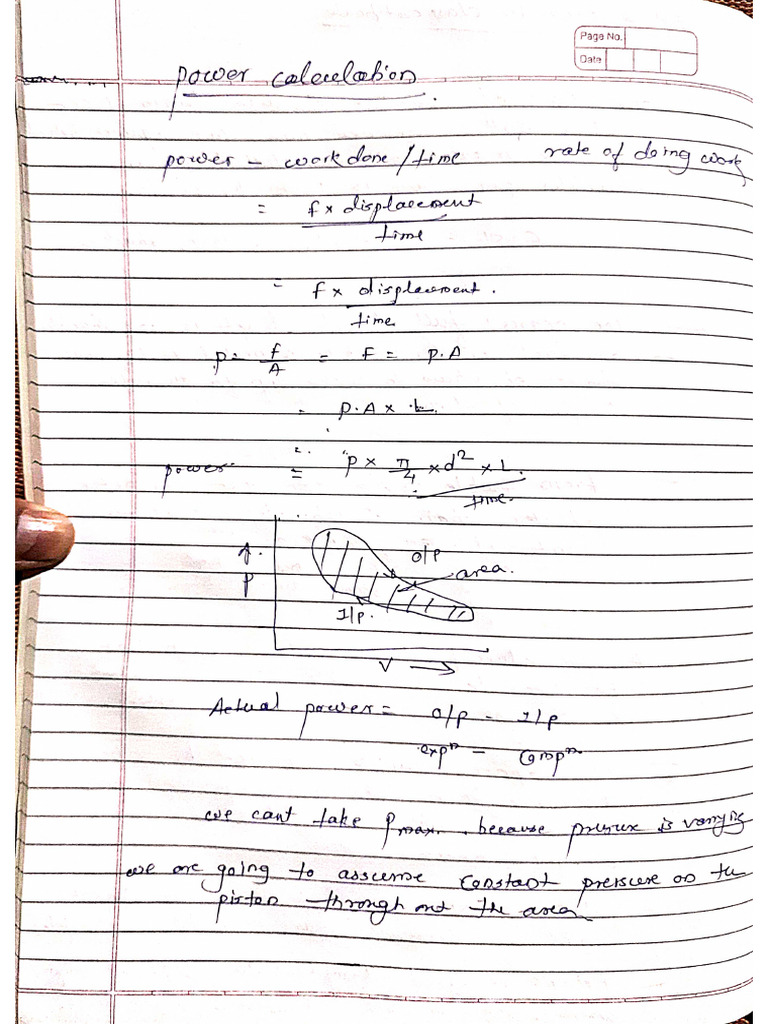 Page No.
Date
power calculation
power - work done / time rate of doing work
= f x displacement
time
= f x displacement.
time
P = f/A = F = P.A
= P.A x L
power = P x π/4 x d² x L.
time.
P
O/P
area.
I/P.
V →
Actual power = O/P - I/P
expⁿ - Compⁿ
we cant take Pmax. because pressure is varying
we are going to assume constant pressure on the
piston through out the area